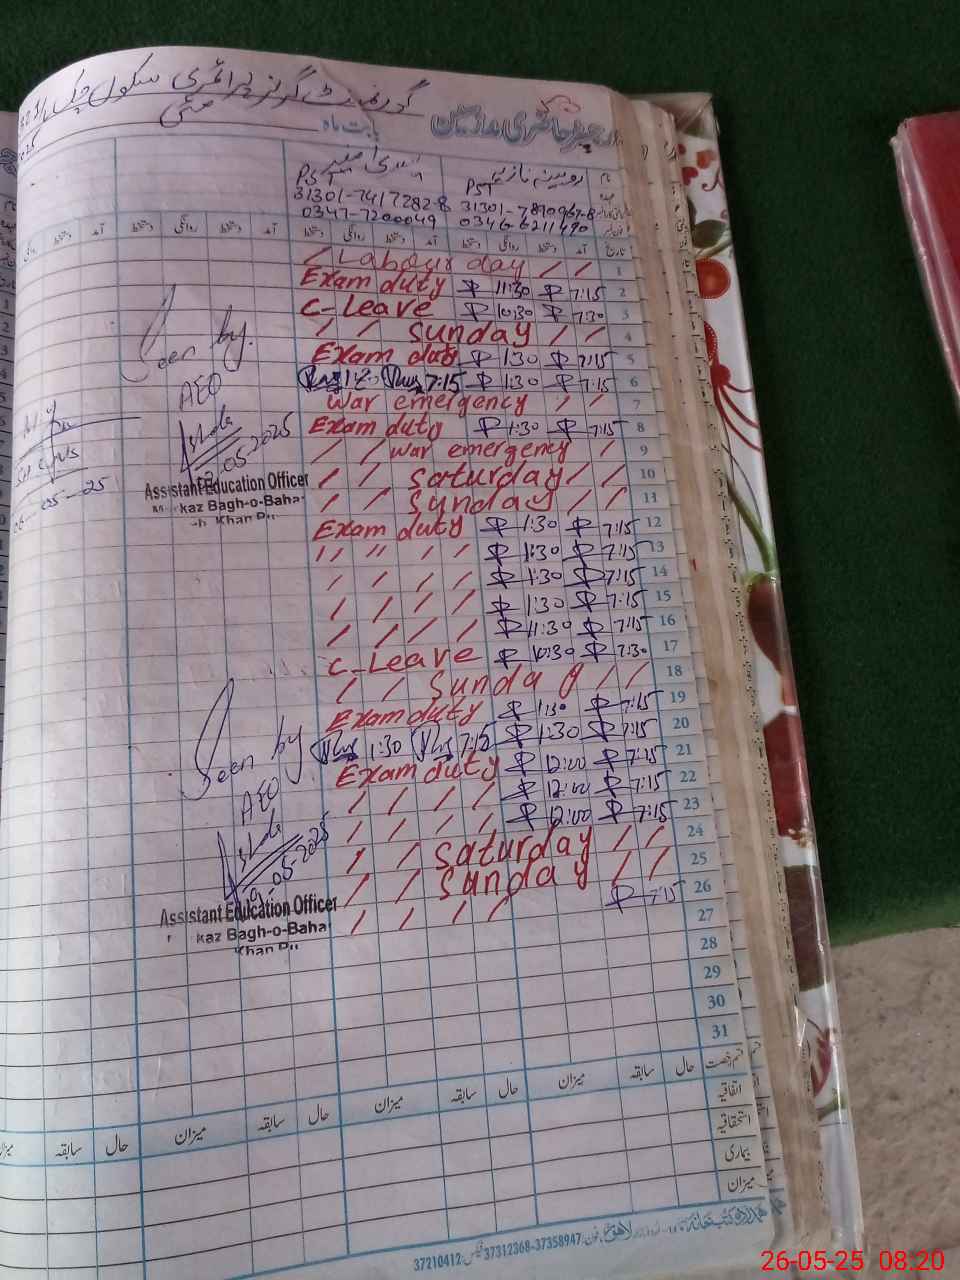 گورنمنٹ گرلز پرائمری سکول چک
رجسٹر حاضری ملازمین
بابت ماہ مئی
روبینہ نازیہ
PST PST
31301-7417282-8
0347-7200049 0346-6211490
تاریخ آمد دستخط روانگی دستخط آمد دستخط روانگی دستخط
Labour day 1
Exam duty 11:30 7:15 2
C-Leave 10:30 7:30 3
Sunday 4
Exam duty 1:30 7:15 5
7:15 1:30 7:15 6
War emergency 7
Exam duty 1:30 7:15 8
War emergency 9
Saturday 10
Sunday 11
Exam duty 1:30 7:15 12
1:30 7:15 13
1:30 7:15 14
1:30 7:15 15
11:30 7:15 16
C-Leave 10:30 7:30 17
Sunday 18
Exam duty 1:30 7:15 19
1:30 7:15 1:30 7:15 20
Exam duty 12:00 7:15 21
12:00 7:15 22
12:00 7:15 23
Saturday 24
Sunday 25
7:15 26
27
28
29
30
31
Seen by
AEO
05-2025
Assistant Education Officer
kaz Bagh-o-Baha
Khan
Seen by
AEO
05-2025
Assistant Education Officer
kaz Bagh-o-Baha
Khan
قسم رخصت حال سابقہ میزان حال سابقہ میزان حال سابقہ میزان حال سابقہ
اتفاقیہ
استحقاقیہ
بیماری
میزان
لاہور فون: 37312368-37358947 فیکس: 37210412
26-05-25 08.20